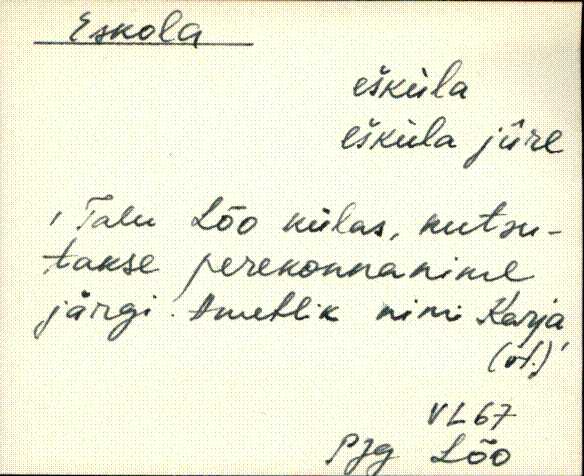 Eskola
ešküla
ešküla jüre
' Talu Lõo külas, kutsu-
takse perekonnanime
järgi. Ametlik nimi Karja
(vt.)'
VL67
Pjg Lõo